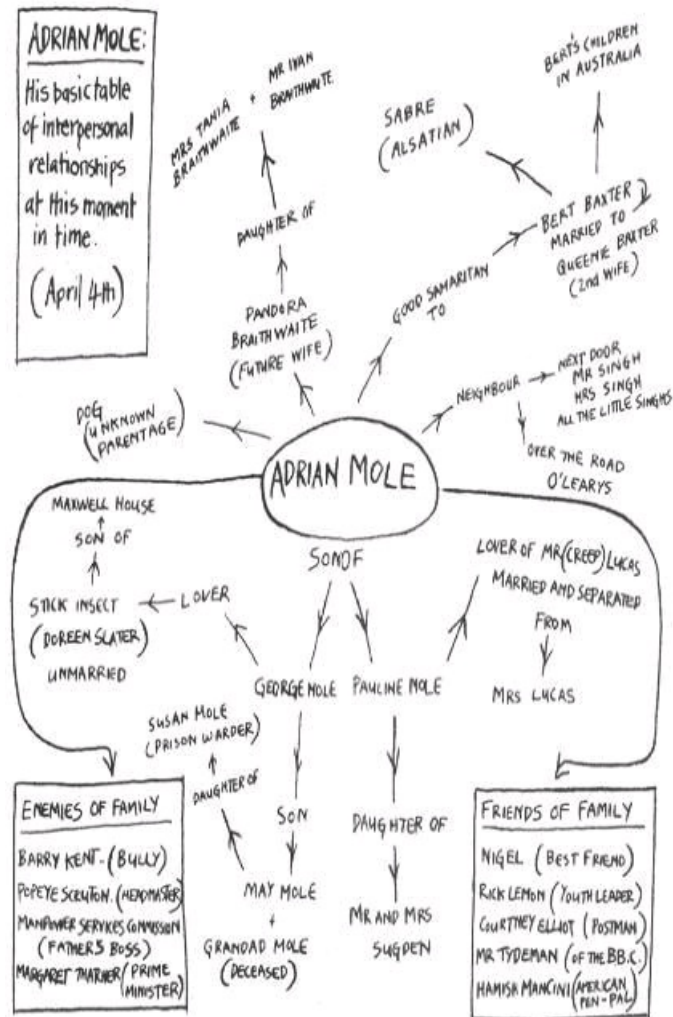 ADRIAN MOLE:
His basic table
of interpersonal
relationships
at this moment
in time.
(April 4th)
MRS TANIA
BRAITHWAITE
+
MR IVAN
BRAITHWAITE
DAUGHTER OF
PANDORA
BRAITHWAITE
(FUTURE WIFE)
BERT'S CHILDREN
IN AUSTRALIA
SABRE
(ALSATIAN)
BERT BAXTER
MARRIED TO
QUEENIE BAXTER
(2nd WIFE)
GOOD SAMARITAN
TO
NEIGHBOUR
NEXT DOOR
MR SINGH
MRS SINGH
ALL THE LITTLE SINGHS
OVER THE ROAD
O'LEARYS
DOG
(UNKNOWN
PARENTAGE)
ADRIAN MOLE
MAXWELL HOUSE
SON OF
STICK INSECT
(DOREEN SLATER)
UNMARRIED
LOVER
SON OF
LOVER OF MR (CREEP) LUCAS
MARRIED AND SEPARATED
FROM
MRS LUCAS
GEORGE MOLE
PAULINE MOLE
SUSAN MOLE
(PRISON WARDER)
DAUGHTER OF
SON
MAY MOLE
+
GRANDAD MOLE
(DECEASED)
DAUGHTER OF
MR AND MRS
SUGDEN
ENEMIES OF FAMILY
BARRY KENT - (BULLY)
POPEYE SCRUTON. (HEADMASTER)
MANPOWER SERVICES COMMISSION
(FATHERS BOSS)
MARGARET THATCHER (PRIME
MINISTER)
FRIENDS OF FAMILY
NIGEL (BEST FRIEND)
RICK LEMON (YOUTH LEADER)
COURTNEY ELLIOT (POSTMAN)
MR TYDEMAN (OF THE B.B.C.)
HAMISH MANCINI (AMERICAN
PEN-PAL)